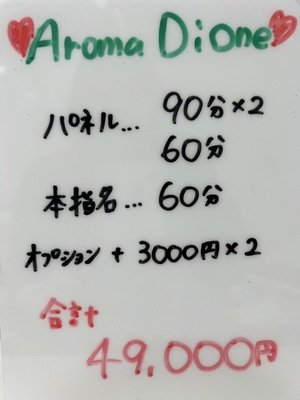 Aroma Dione
パネル... 90分×2
60分
本指名... 60分
オプション + 3000円×2
合計
49,000円